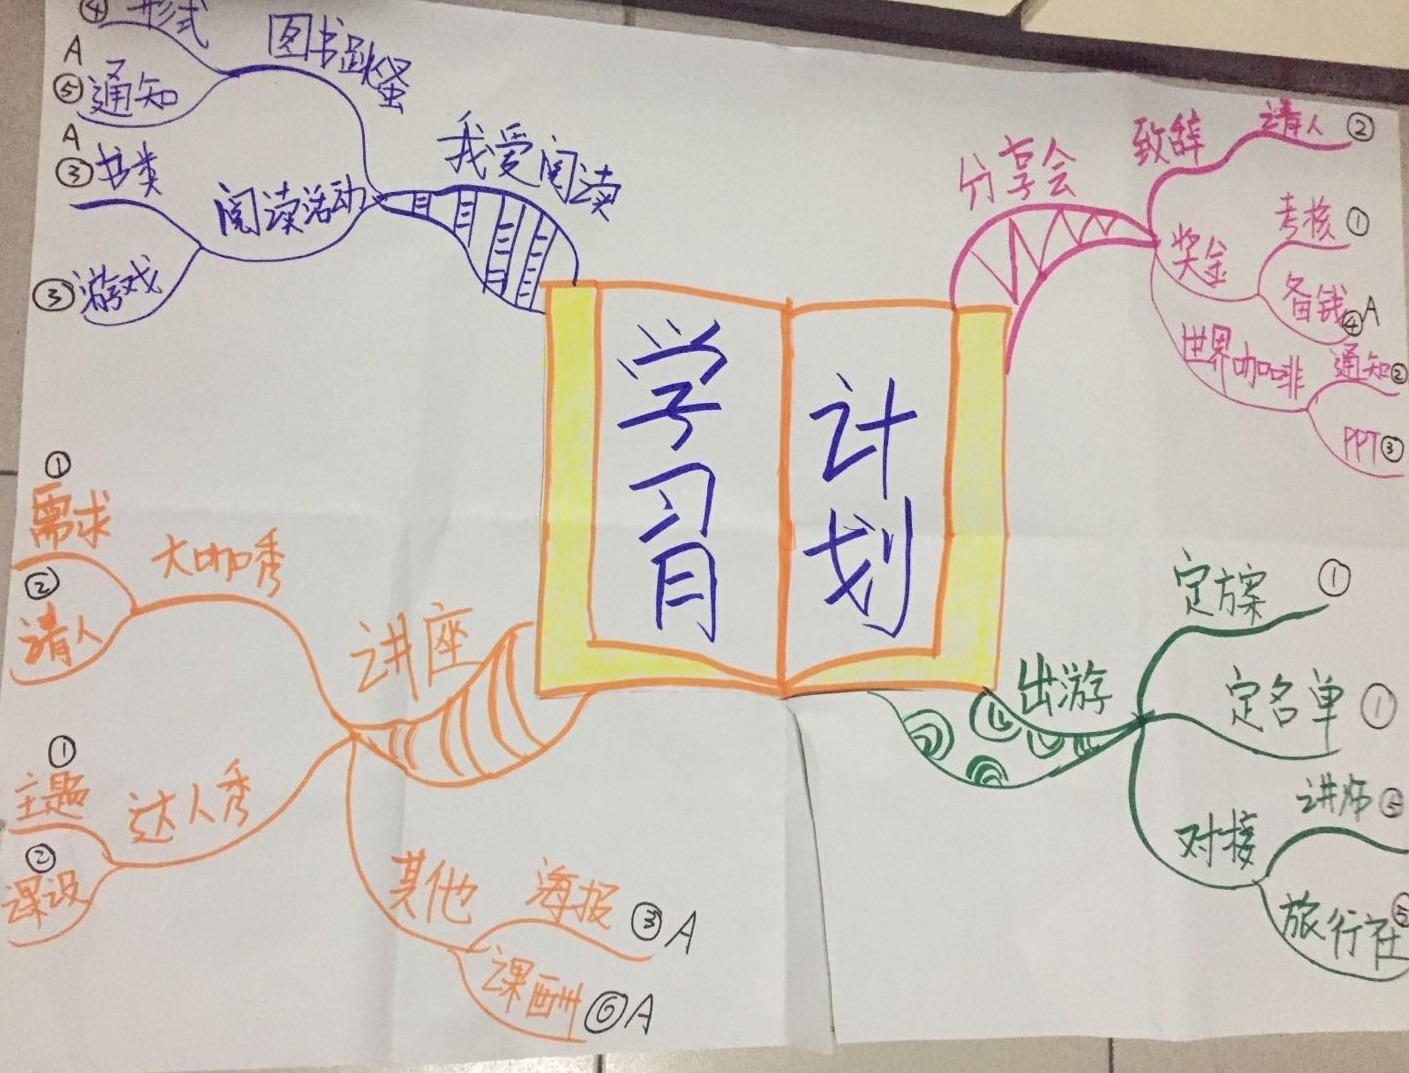 学习月
计划
分享会
致辞
请人 ②
奖金
考核 ①
备钱 ④ A
世界咖啡
通知 ②
PPT ③
出游
定方案 ①
定名单 ①
对接
讲师
旅行社
讲座
大咖秀
① 需求
② 请人
达人秀
① 主题
② 课设
其他
海报 ③ A
课酬 ⑥ A
我爱阅读
图书跳蚤
④ 形式
A
⑤ 通知
阅读活动
A
③ 书类
③ 游戏